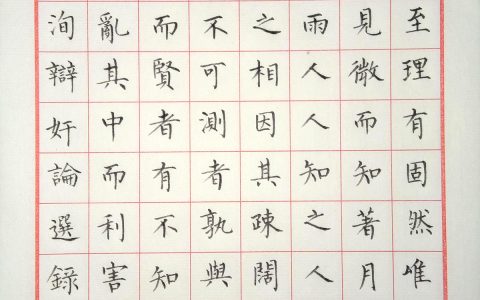 至理有固然唯
見微而知著月
雨人人知之人
之相因其疎闊
不可測者孰與
而賢者有不知
亂其中而利害
洵辯奸論選錄